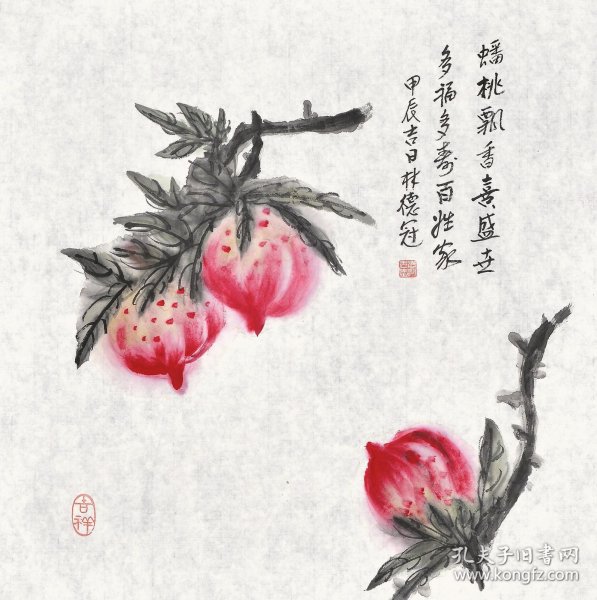 蟠桃飘香喜盛世
多福多寿百姓家
甲辰吉日林德冠
吉祥
孔夫子旧书网
www.kongfz.com